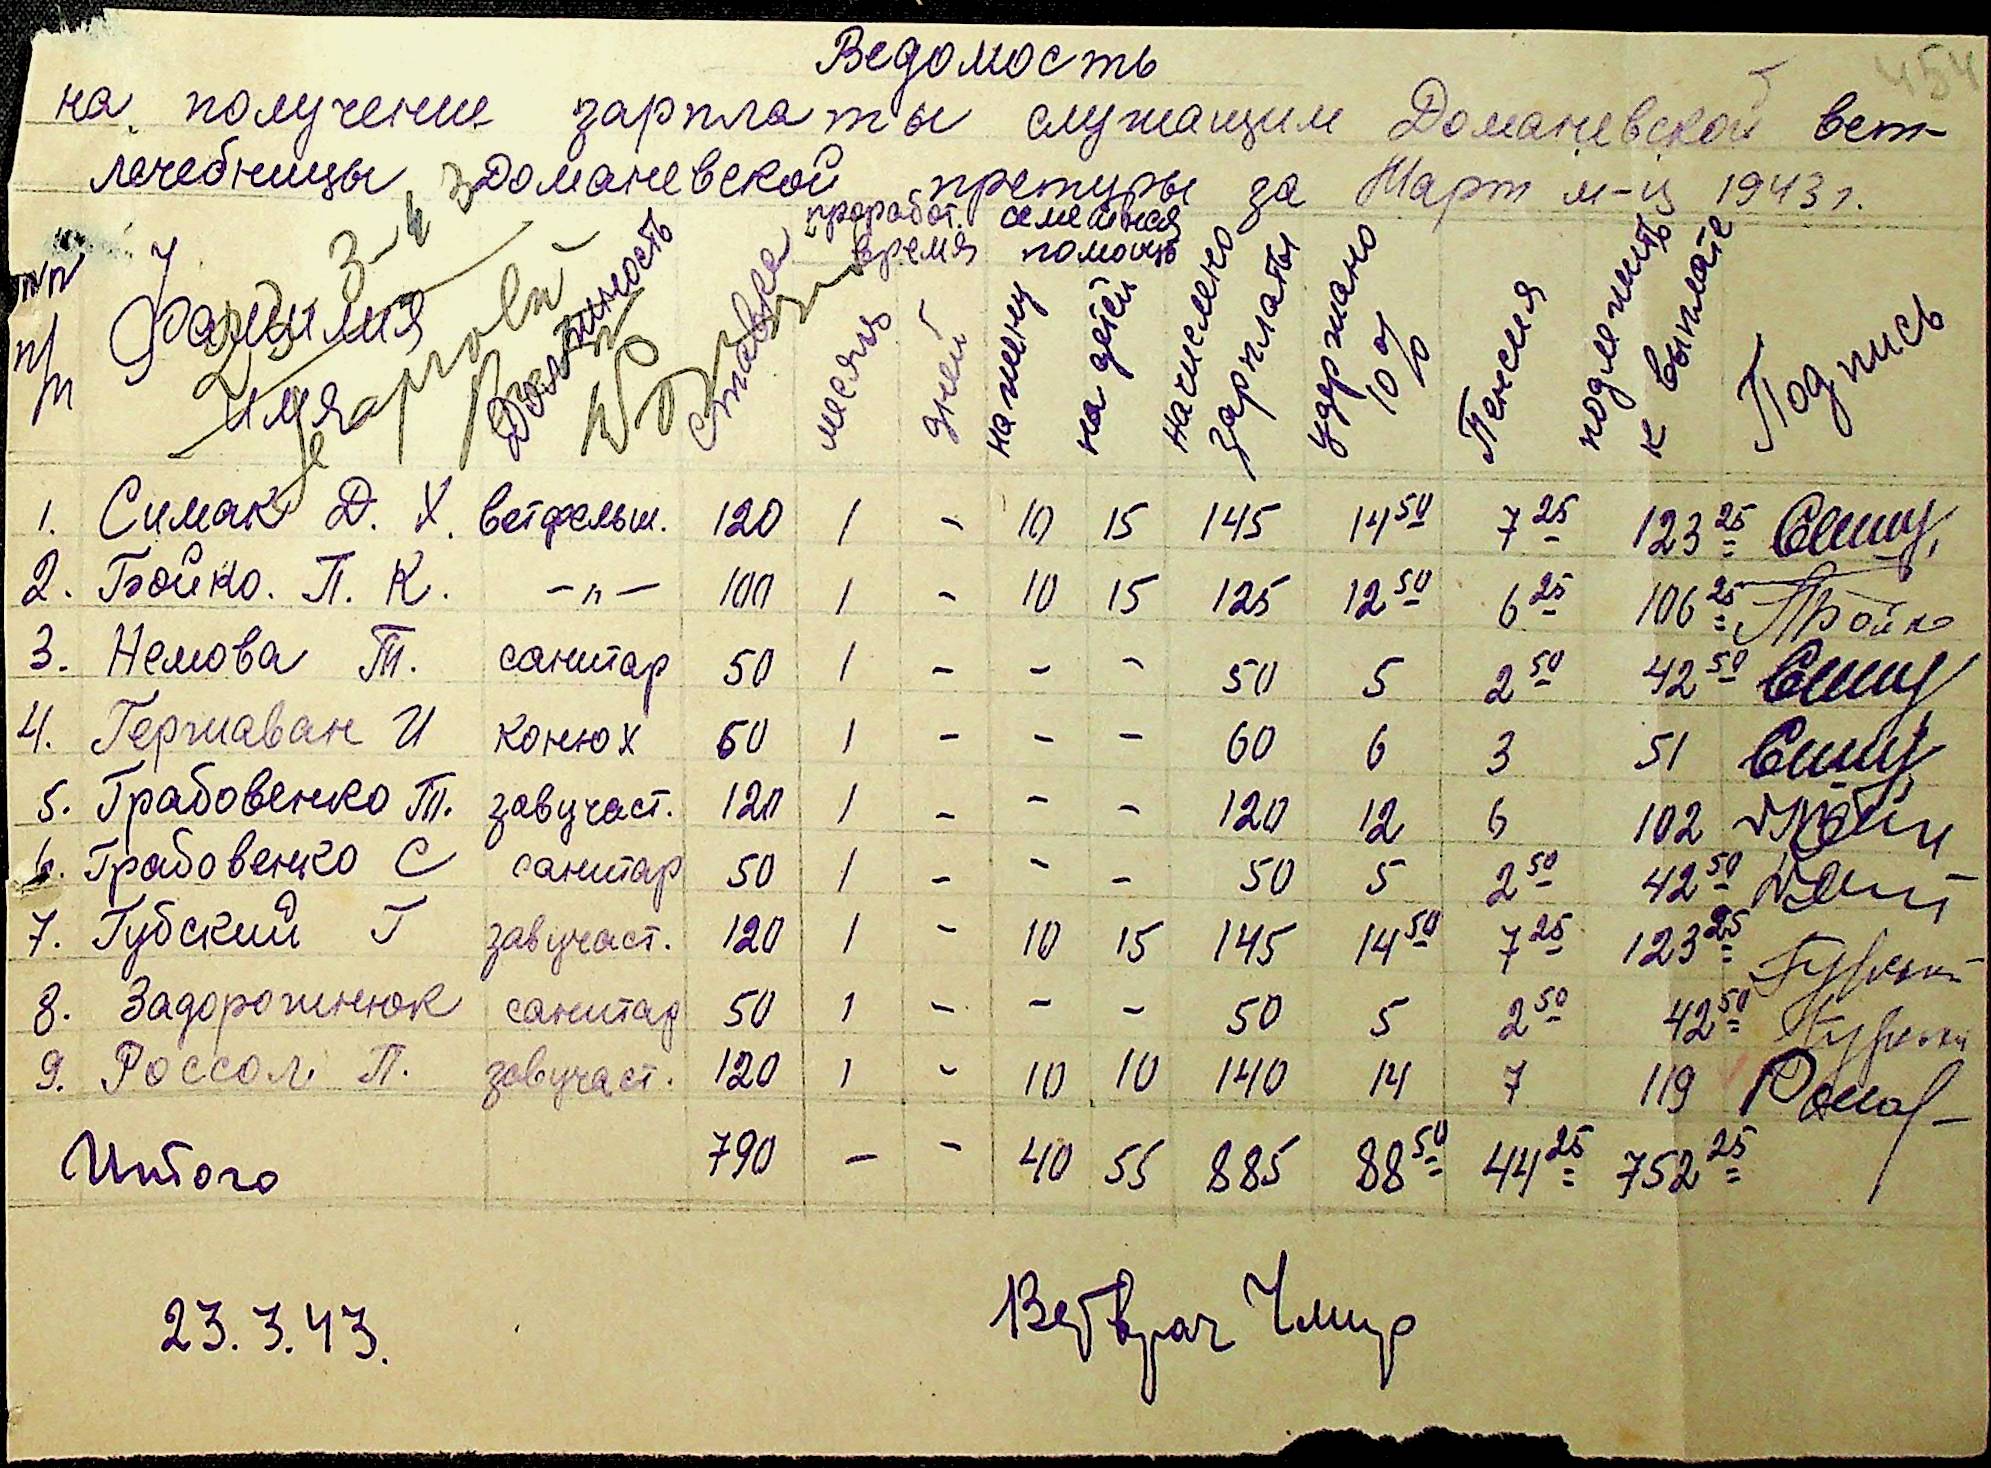 454
Ведомость
на получение зарплаты служащим Доманевской вет-
лечебницы Доманевской претуры за Март м-ц 1943 г.
№№ п/п Фамилия имя Должность ставка проработ. время месяц дней семейная помощь на жену на детей начислено зарплаты удержано 10% Пенсия подлежить к выплате Подпись
1. Симак Д. Х. ветфельш. 120 1 - 10 15 145 14 50 7 25 123 25
2. Бойко. П. К. -"- 100 1 - 10 15 125 12 50 6 25 106 25 Бойко
3. Немова Т. санитар 50 1 - - - 50 5 2 50 42 50
4. Гержаван И конюх 60 1 - - - 60 6 3 51
5. Грабовенко Т. завучаст. 120 1 - - - 120 12 6 102
6. Грабовенко С санитар 50 1 - - - 50 5 2 50 42 50
7. Губский Г завучаст. 120 1 - 10 15 145 14 50 7 25 123 25
8. Задорожнюк санитар 50 1 - - - 50 5 2 50 42 50
9. Россол П. завучаст. 120 1 - 10 10 140 14 7 119
Итого 790 - - 40 55 885 88 50 44 25 752 25
23.3.43. Ветврач